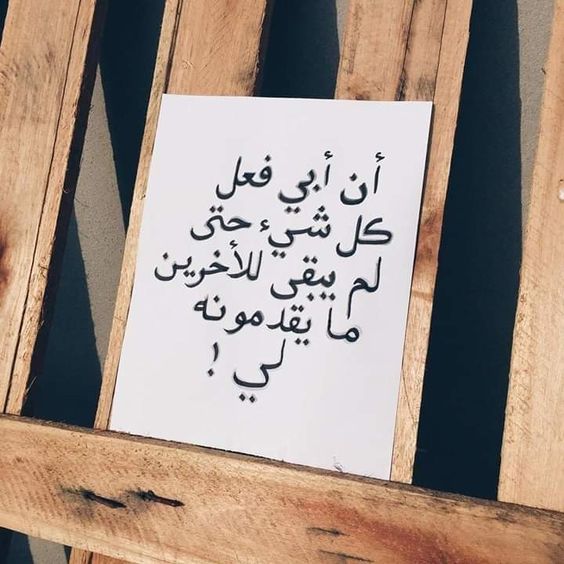 أن أبي فعل
كل شيء حتى
لم يبقى للأخرين
ما يقدمونه
لي !